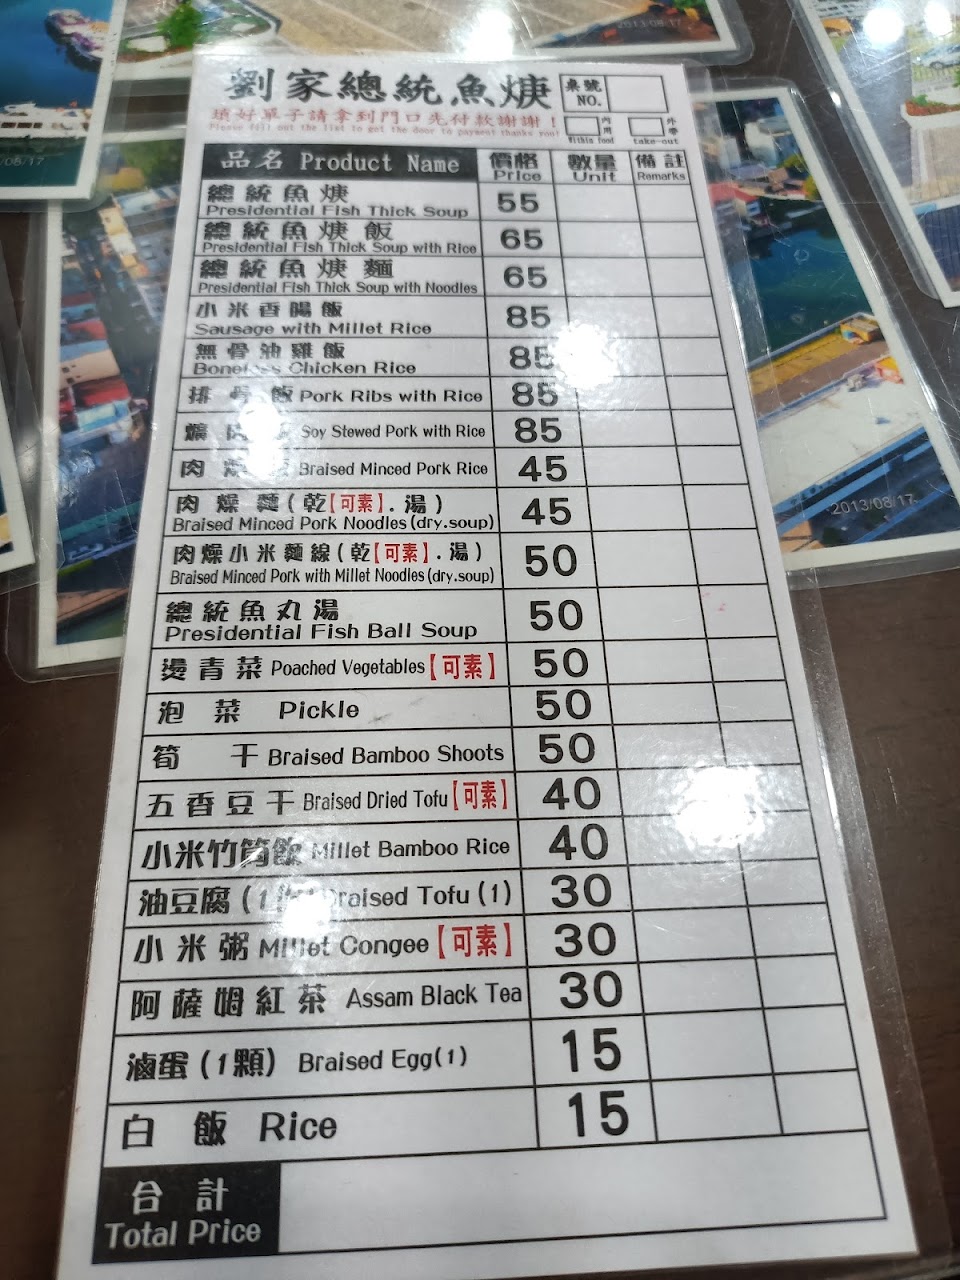 劉家總統魚焿
桌號
NO.
填好單子請拿到門口先付款謝謝！
Please fill out the list to get the door to payment thank you!
內用
Within food
外帶
take-out
品名 Product Name 價格 Price 數量 Unit 備註 Remarks
總統魚焿
Presidential Fish Thick Soup 55
總統魚焿飯
Presidential Fish Thick Soup with Rice 65
總統魚焿麵
Presidential Fish Thick Soup with Noodles 65
小米香腸飯
Sausage with Millet Rice 85
無骨油雞飯
Chicken Rice 85
排骨飯 Pork Ribs with Rice 85
Soy Stewed Pork with Rice 85
肉 Braised Minced Pork Rice 45
肉燥麵(乾【可素】.湯)
Braised Minced Pork Noodles(dry.soup) 45
肉燥小米麵線(乾【可素】.湯)
Braised Minced Pork with Millet Noodles(dry.soup) 50
總統魚丸湯
Presidential Fish Ball Soup 50
燙青菜 Poached Vegetables【可素】 50
泡菜 Pickle 50
筍干 Braised Bamboo Shoots 50
五香豆干 Braised Dried Tofu【可素】 40
小米竹筒飯 Millet Bamboo Rice 40
油豆腐 Braised Tofu (1) 30
小米粥 Millet Congee【可素】 30
阿薩姆紅茶 Assam Black Tea 30
滷蛋(1顆) Braised Egg(1) 15
白飯 Rice 15
合計
Total Price
2013/08/17
2013/08/17